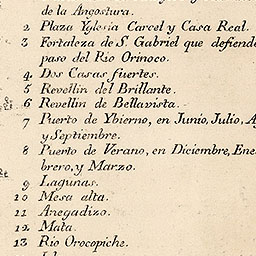 de la Angostura.
2 Plaza Yglesia Carcel y Casa Real.
3 Fortaleza de S. Gabriel que defiende
paso del Rio Orinoco.
4 Dos Casas fuertes.
5 Revellin del Brillante.
6 Revellin de Bellavista.
7 Puerto de Ybierno, en Junio, Julio, Ag
y Septiembre.
8 Puerto de Verano, en Diciembre, Ene
brero, y Marzo.
9 Lagunas.
10 Mesa alta.
11 Anegadizo.
12 Mata.
13 Rio Orocopiche.